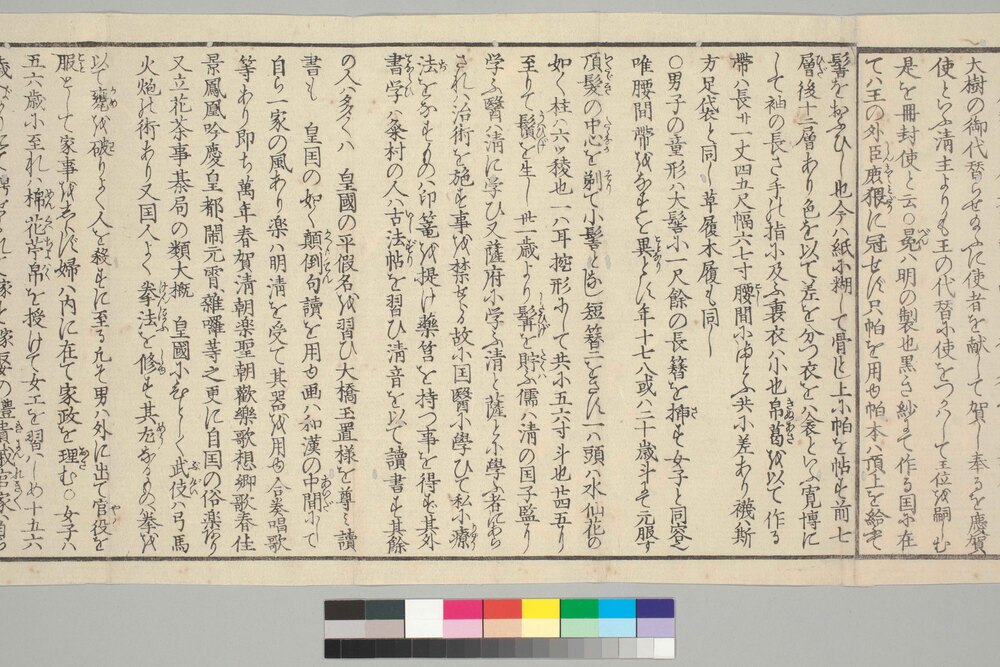 大樹の御代替らせ給ふに使者を献して賀し奉るを慶賀
使といふ清主よりも王の代替に使をつかハして王位を嗣しむ
是を冊封使と云○冕ハ明の製也黒き紗にて作る国に在
てハ王の外臣庶猥に冠せす只帕を用ゆ帕本ハ頂上を給て
髻をおふひし也今ハ紙に糊して骨とし上に帕を帖す前七
層後十二層あり色を以て差を分つ衣をハ衾といふ寛博に
して袖の長さ手の指に及ふ裏衣ハ小也帛葛を以て作る
帯ハ長サ一丈四五尺幅六七寸腰間にまとふ共に差あり襪ハ斯
方足袋と同し草履木履も同し
○男子の童形ハ大髻に一尺餘の長簪を挿す女子と同容也
唯腰間帯を同異とす年十七八或ハ二十歳斗にて元服す
頂髪の中心を剃て小髻とし短簪二をさす一ハ頭ハ水仙花の
如く柱ハ六ツ稜也一ハ耳挖形にして共に五六寸斗也廿四五より
至りて鬚を生し卅一歳より髯を貯ふ儒ハ清の国子監に
学ふ醫ハ清に学ひ又薩府に学ふ清と薩とに學ふ者にあら
されハ治術を施す事を禁せらる故に国醫に學ひて私に療
法をなすものハ印篭を提け藥筥を持つ事を得す其外
書学ハ粂村の人ハ古法帖を習ひ清音を以て讀書す其餘
の人ハ多くハ　皇國の平假名を習ひ大橋玉置様を尊ミ讀
書も　皇国の如く顛倒句讀を用ゆ画ハ和漢の中間にして
自ら一家の風あり楽ハ明清を受て其器を用ゆ合奏唱歌
等あり即ち萬年春賀清朝楽聖朝歡樂歌想卿歌春佳
景鳳凰吟慶皇都鬧元宵雜囉等之更に自国の俗楽あり
又立花茶事棊局の類大概　皇國にひとしく武伎ハ弓馬
火炮の術あり又国人よく拳法を修す其尤なるもの拳を
以て甕を破りよく人を殺すに至る凡そ男ハ外に出て官役を
服として家事をしらす婦ハ内に在て家政を理む○女子ハ
五六歳に至れハ棉花苧帛を授けて女工を習ハしめ十五六